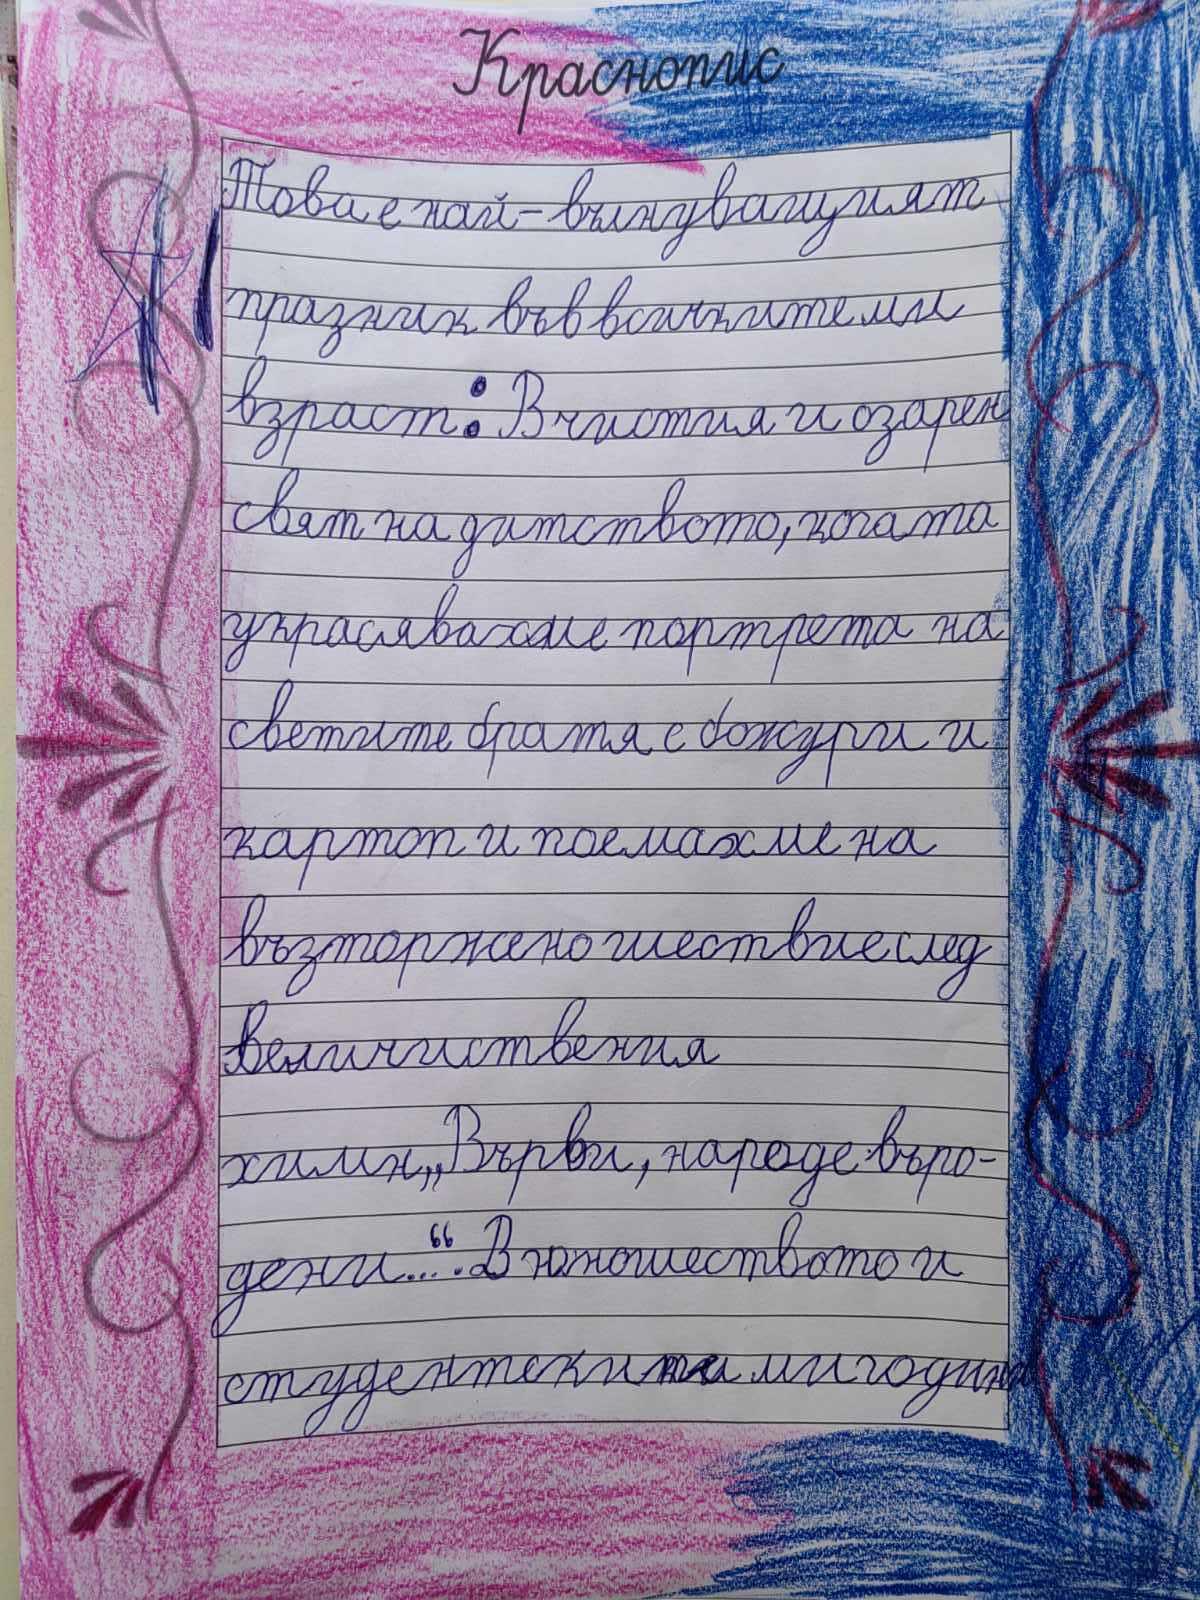 Краснопис
Това е най-вълнуващият
празник във всичките ми
възраст: В чистия и озарен
свят на дитството, когата
украсявахме портрета на
светите братя с божури и
картоп и поемахме на
възторжено шествие след
величиствения
химн „Върви, народе върo-
дени...“. В юношеството и
студентските ми годин